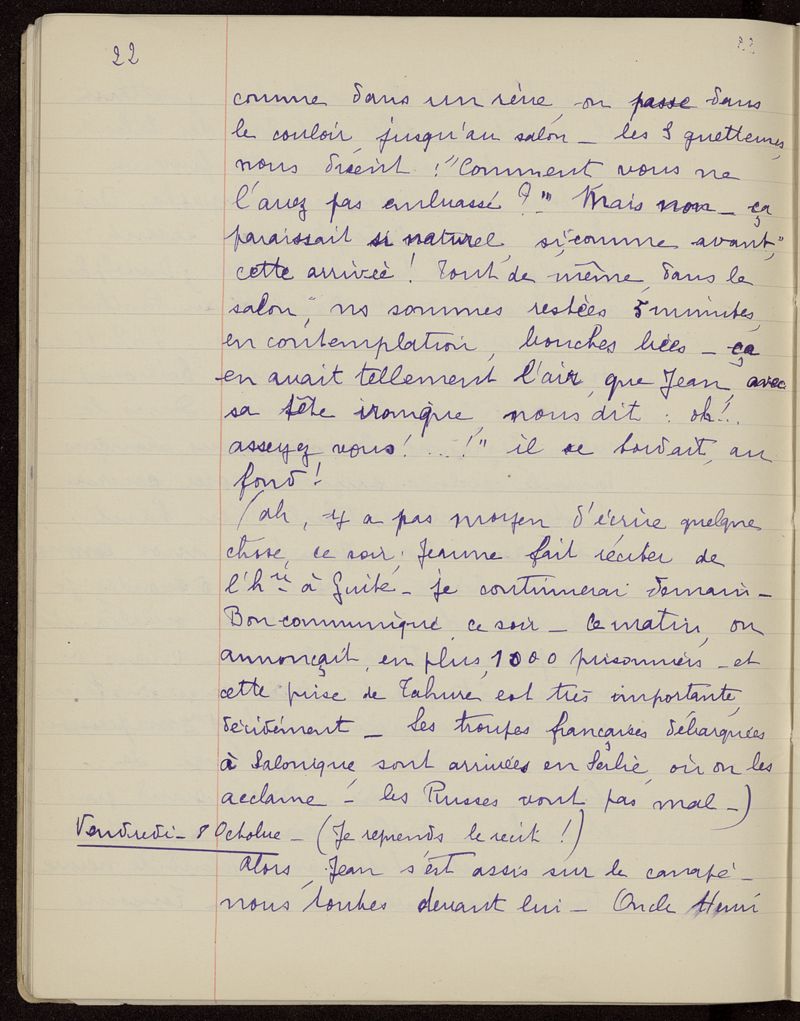 22
comme dans un rêve, on passe dans
le couloir, jusqu'au salon - les 3 guetteuses,
nous disent : "Comment vous ne
l'avez pas embrassé ?" Mais non - ça
paraissait si naturel, si, "comme avant,"
cette arrivée ! Tout de même, dans le
salon, ns sommes restées 5 minutes,
en contemplation, bouches bées - ça
en avait tellement l'air, que Jean, avec
sa tête ironique, nous dit : oh !..
asseyez vous ! ... !" il se tordait, au
fond !
(ah, y a pas moyen d'écrire quelque
chose, ce soir ; Jeanne fait réciter de
l'hre à Guite - je continuerai demain -
Bon communiqué, ce soir - Ce matin, on
annonçait, en plus, 1000 prisonniers - et
cette prise de Tahure est très importante,
décidément - Les troupes françaises débarquées
à Salonique, sont arrivées en Serbie, où on les
acclame - les Russes vont pas mal -)
Vendredi - 8 Octobre - (Je reprends le récit !)
Alors, Jean s'est assis sur le canapé -
nous toutes devant lui - Oncle Henri